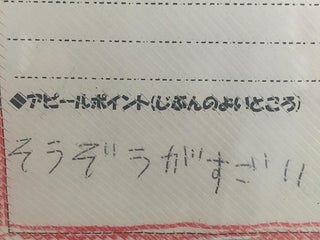 ◆アピールポイント(じぶんのよいところ)
そうぞうがすごい